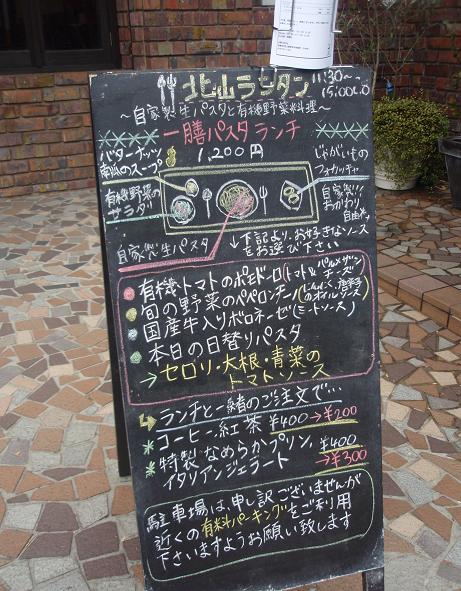 ビルランタン 11:30〜
15:00LO
〜自家製生パスタと有機野菜料理〜
XXXX 一膳パスタランチ XXXX
1,200円
バターナッツ
南瓜のスープ
有機野菜の
サラダ
じゃがいもの
フォカッチャ
自家製生パスタ
↓下記よりお好きなソース
をお選び下さい
有機トマトのポモドーロ
旬の野菜のペペロンチーノ
国産牛入りボロネーゼ(ミートソース)
本日の日替りパスタ
→セロリ、大根、青菜の
トマトソース
ランチと一緒のご注文で
コーヒー、紅茶 ¥400→¥200
特製なめらかプリン ¥600
イタリアンジェラート →¥500
駐車場は申し訳ございませんが
近くの有料パーキングをご利用
下さいますようお願い致します